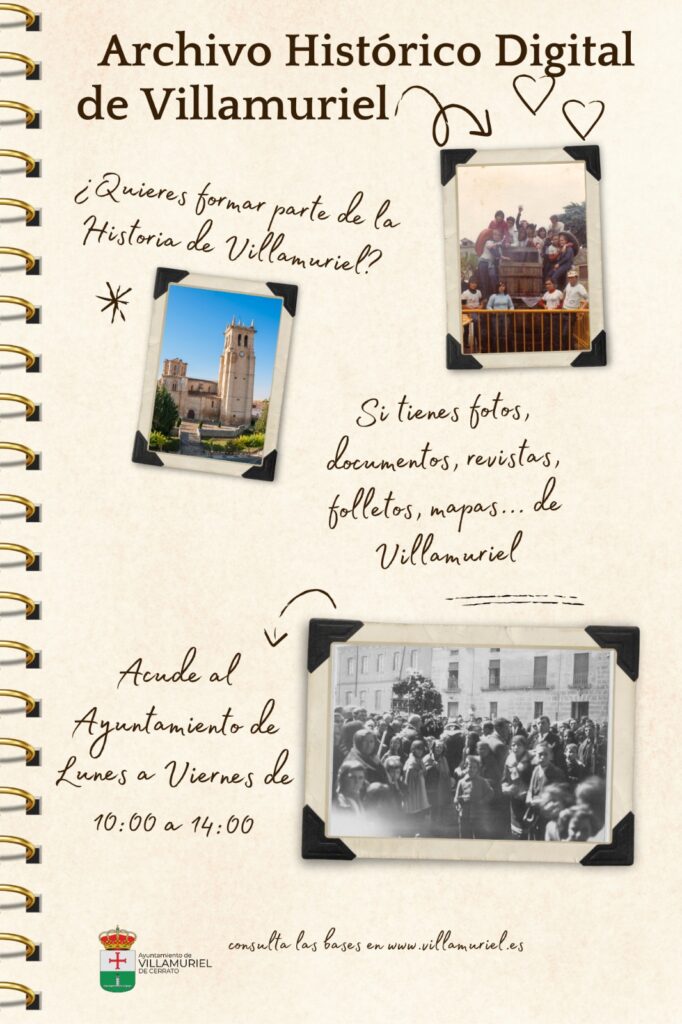 Archivo Histórico Digital
de Villamuriel
¿Quieres formar parte de la
Historia de Villamuriel?
Si tienes fotos,
documentos, revistas,
folletos, mapas... de
Villamuriel
Acude al
Ayuntamiento de
Lunes a Viernes de
10:00 a 14:00
Ayuntamiento de
VILLAMURIEL
DE CERRATO
consulta las bases en www.villamuriel.es